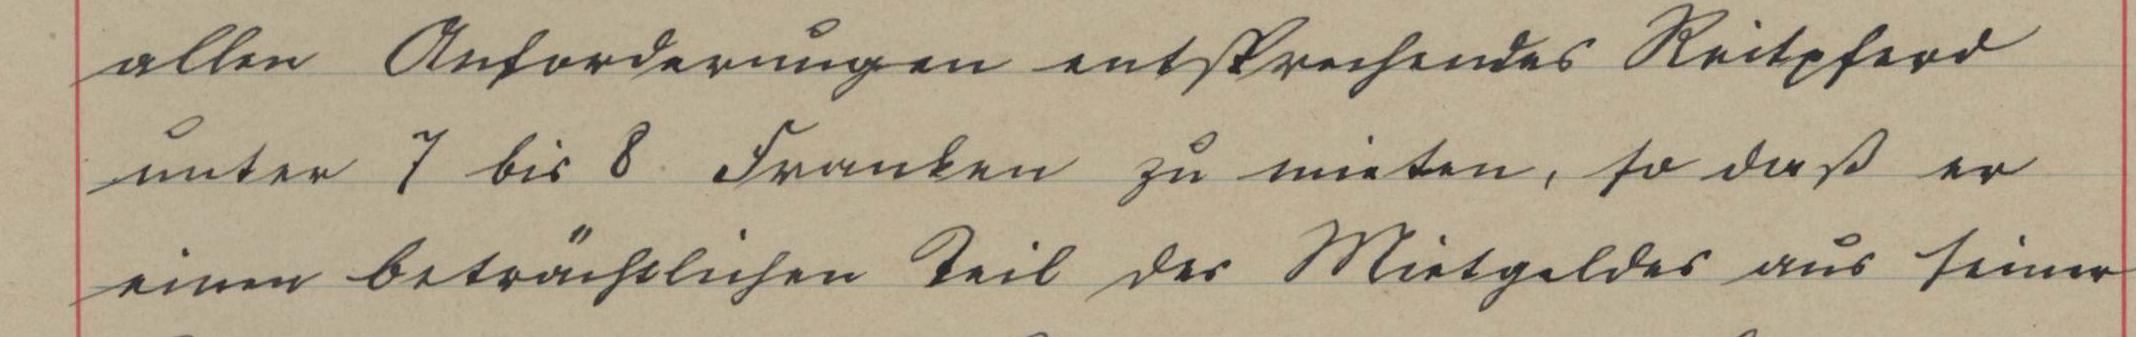 allen Anforderungen entsprechendes Reitpferd
unter 7 bis 8 Franken zu mieten, so daß er
einen beträchtlichen Teil des Mietgeldes aus seiner